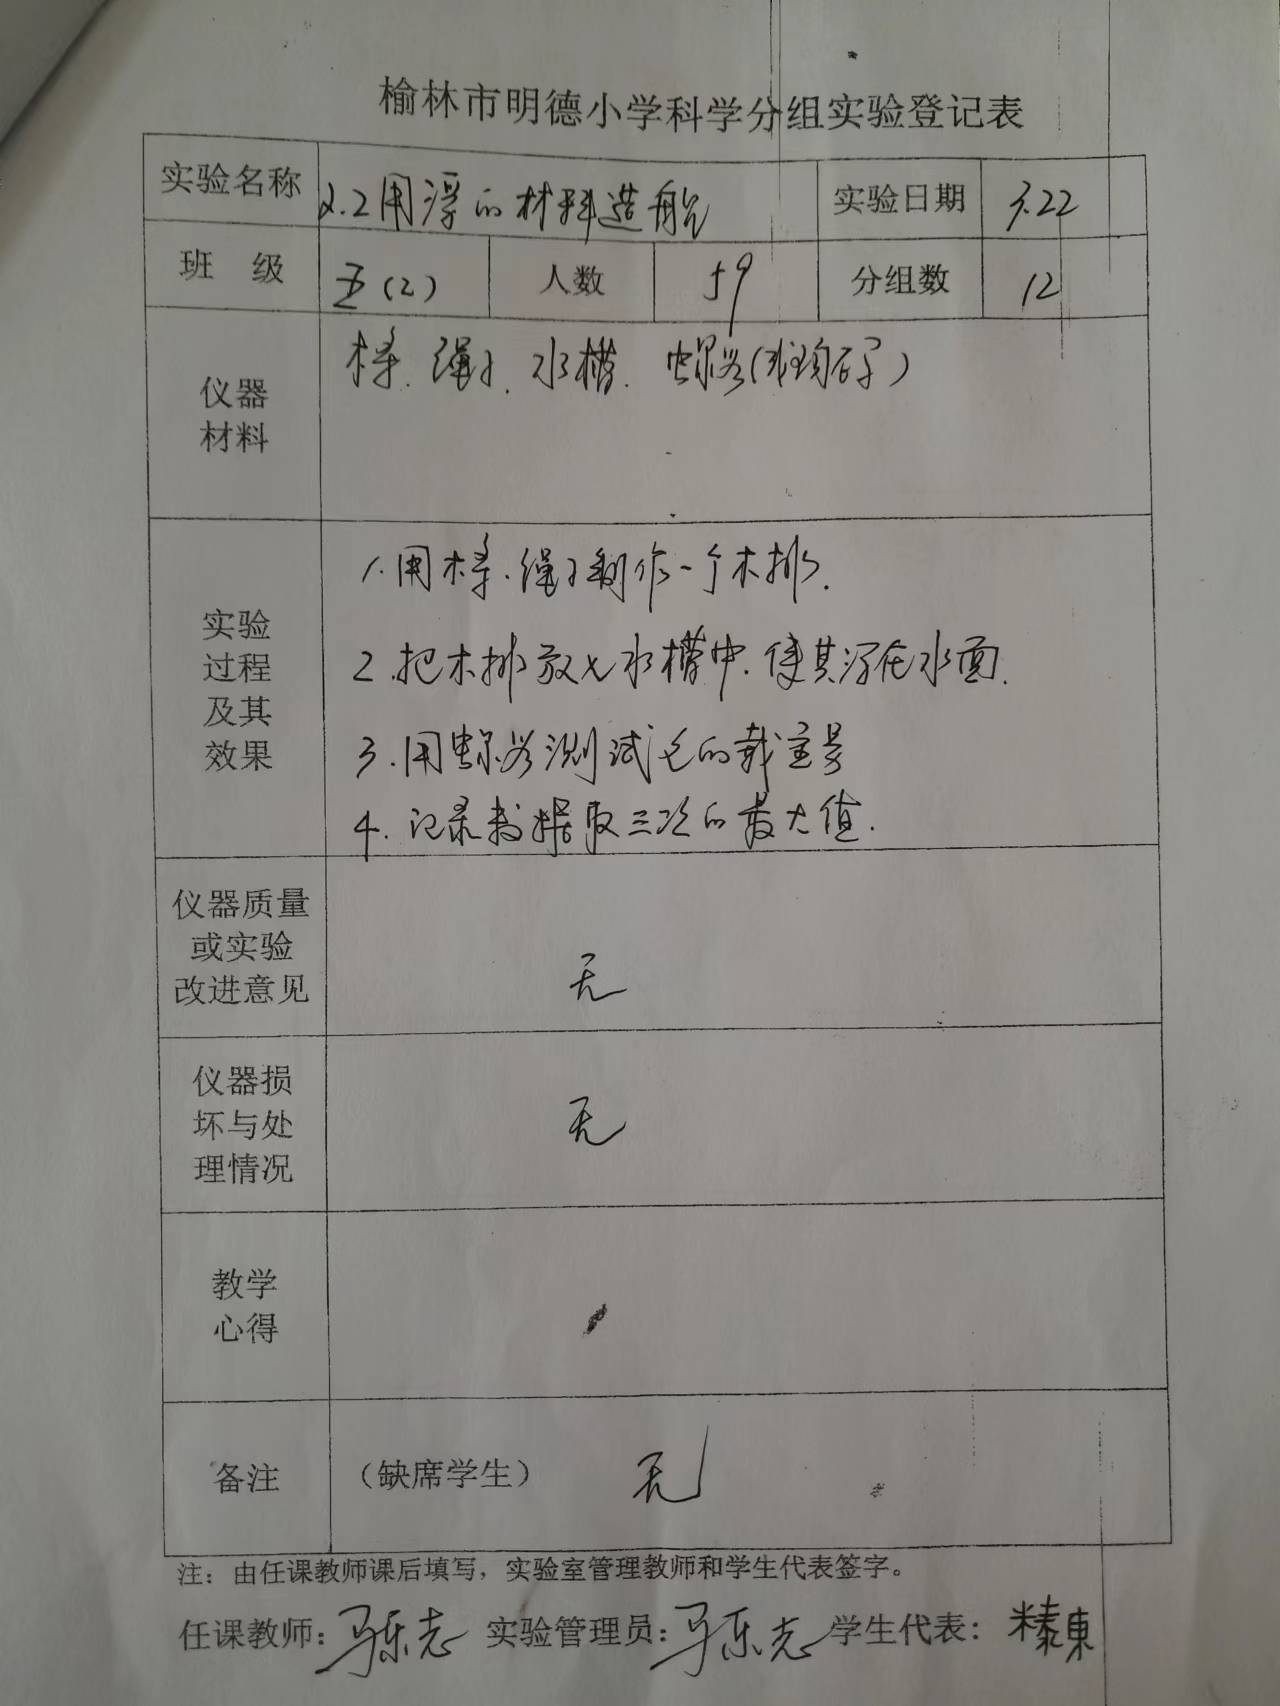 榆林市明德小学科学分组实验登记表
实验名称 2.2用浮的材料造船 实验日期 3.22
班 级 五(2) 人数 59 分组数 12
仪器
材料
木条、绳子、水槽、螺丝(或钩码)
实验
过程
及其
效果
1.用木条、绳子制作一个木排.
2.把木排放入水槽中,使其浮在水面.
3.用螺丝测试它的载重量
4.记录数据取三次的最大值.
仪器质量
或实验
改进意见
无
仪器损
坏与处
理情况
无
教学
心得
备注 (缺席学生) 无
注：由任课教师课后填写，实验室管理教师和学生代表签字。
任课教师: 马乐志 实验管理员: 马乐志 学生代表: